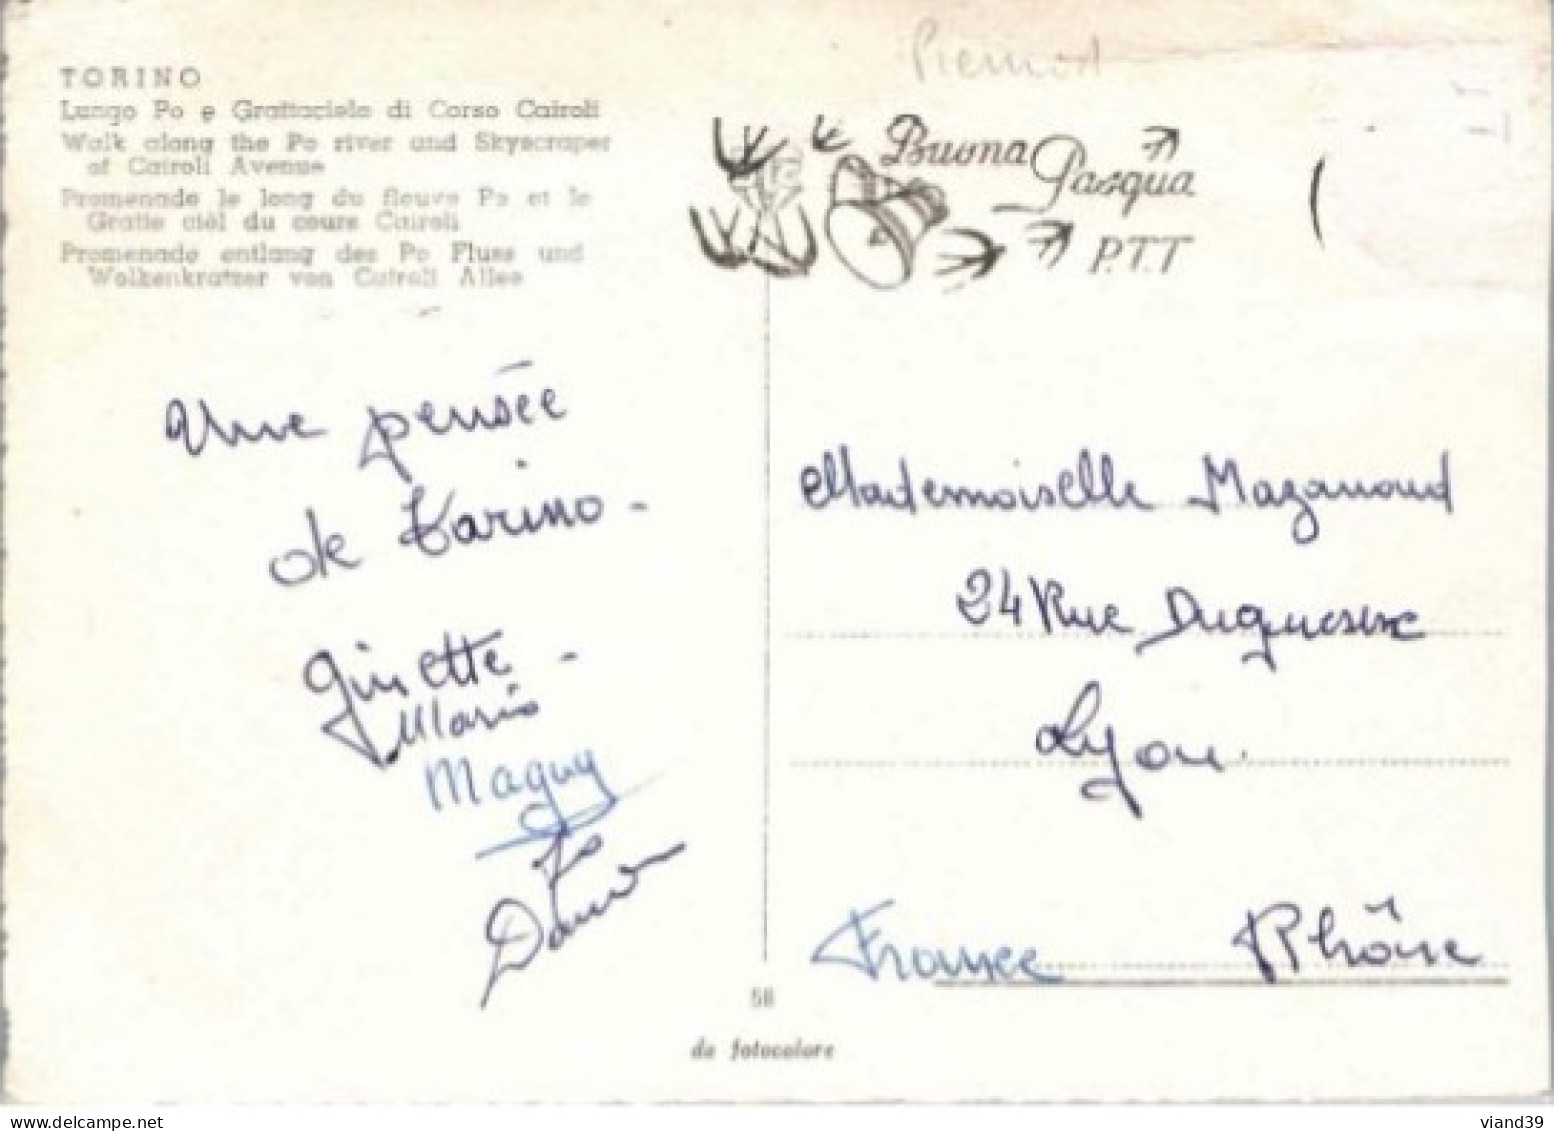 TORINO
Lungo Po e Grattacielo di Corso Cairoli
Walk along the Po river and Skyscraper
of Cairoli Avenue
Promenade le long du fleuve Po et le
Gratte ciél du cours Cairoli
Promenade entlang des Po Fluss und
Wolkenkratzer von Cairoli Allee
Piemont
Buona Pasqua
P.T.T
Une pensée
de Torino -
Ginette -
Mario
Maguy
Mademoiselle Mazanoud
24 Rue Duquesne
Lyon.
France Rhône
58
da fotocolore
viand39